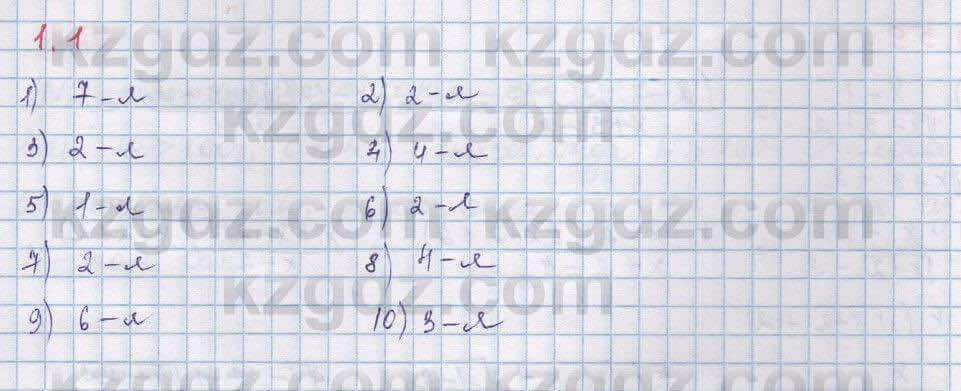 1.1
1) 7-я 2) 2-я
3) 2-я 4) 4-я
5) 1-я 6) 2-я
7) 2-я 8) 4-я
9) 6-я 10) 3-я
kzgdz.com kzgdz.com
kzgdz.com
kzgdz.com kzgdz.com
kzgdz.com